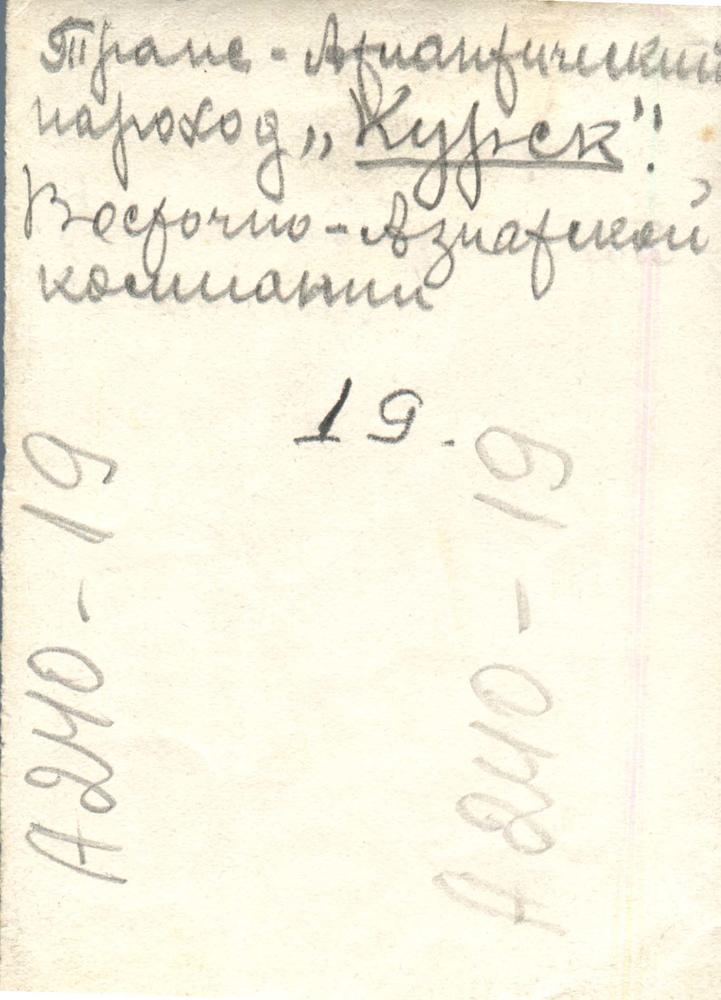 Транс-Атлантический
пароход „Курск".
Восточно-Азиатской
компании
19.
А240-19
А240-19